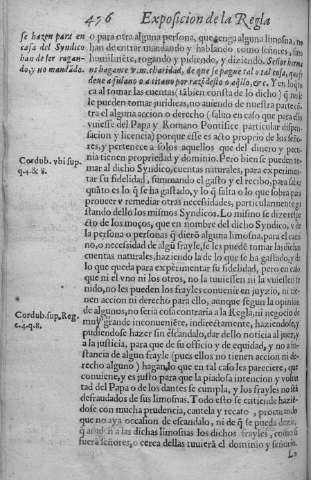 456 Exposicion de la Regla
se hazen para en
casa del Syndico
han de ser rogan-
do, y no mandado.
o para otra alguna persona, que tenga alguna limosna, no
han de entrar mandando y hablando como señores, sino
humilmēte, rogando y pidiendo, y diziendo. Señor herma
no hagame v.m. charidad, de que se pague tal o tal cosa, que se
deue a fulano o a citano por razō desto o aq̃llo, &c. Y en lo que
ca al tomar las cuentas (tābien consta de lo dicho) q̃ no se
le pueden tomar juridicas, no auiendo de nuestra parte cō
tra el alguna accion o derecho (saluo en caso que para ello
vuiesse del Papa y Romano Pontifice particular dispen-
sacion y licencia) porque esse es acto proprio de los seño-
res, y pertenece a solos aquellos que del dinero y pecu-
nia tienen propriedad y dominio. Pero bien se pueden to-
Cordub. vbi sup.
q.4. & 8.
mar al dicho Syndico, cuentas naturales, para experimen-
tar su fidelidad, summando el gasto y el recibo, para saber
quāto es lo q̃ se ha gastado, y lo q̃ falta o lo que sobra para
proueer y remediar otras necessidades, particularmente ga
stando dello los mismos Syndicos. Lo mismo se dize respe
cto de los moços, que en nombre del dicho Syndico, y de
la persona o personas q̃ dierō alguna limosna, para el caso
no, o necessidad de algū frayle, se les puedē tomar las dichas
cuentas naturales, haziendo la de lo que se ha gastado, y de
lo que queda para experimentar su fidelidad, pero en caso
que ni el vno ni los otros, no la tuuiessen ni la vuiessen te
nido, no les pueden los frayles conuenir en juyzio, ni tie-
nen accion ni derecho para ello, aunque segun la opinion
de algunos, no seria cosa contraria a la Regla, ni negocio de
Cordub. sup. Reg.
c.4.q.8.
muy grande inconueniēte, indirectamente, haziendose, y
pudiendose hazer sin escandalo, dar dello noticia al juez, y
a la justicia, para que de su officio y de equidad, y no a in-
stancia de algun frayle (pues ellos no tienen accion ni de-
recho alguno) hagan lo que en tal caso les pareciere, que
conuiene, y es justo para que la piadosa intencion y volun
tad del Papa o de los dantes se cumpla, y los frayles no sean
defraudados de sus limosnas. Todo esto se entiende hazien
dose con mucha prudencia, cautela y recato, procurando
que no aya occasion de escandalo, ni de q̃ se pueda dezir,
q̃ a las dichas limosnas los dichos frayles, como si
fuera señores, o cerca dellas tuuierā el dominio y señorio.
Lo